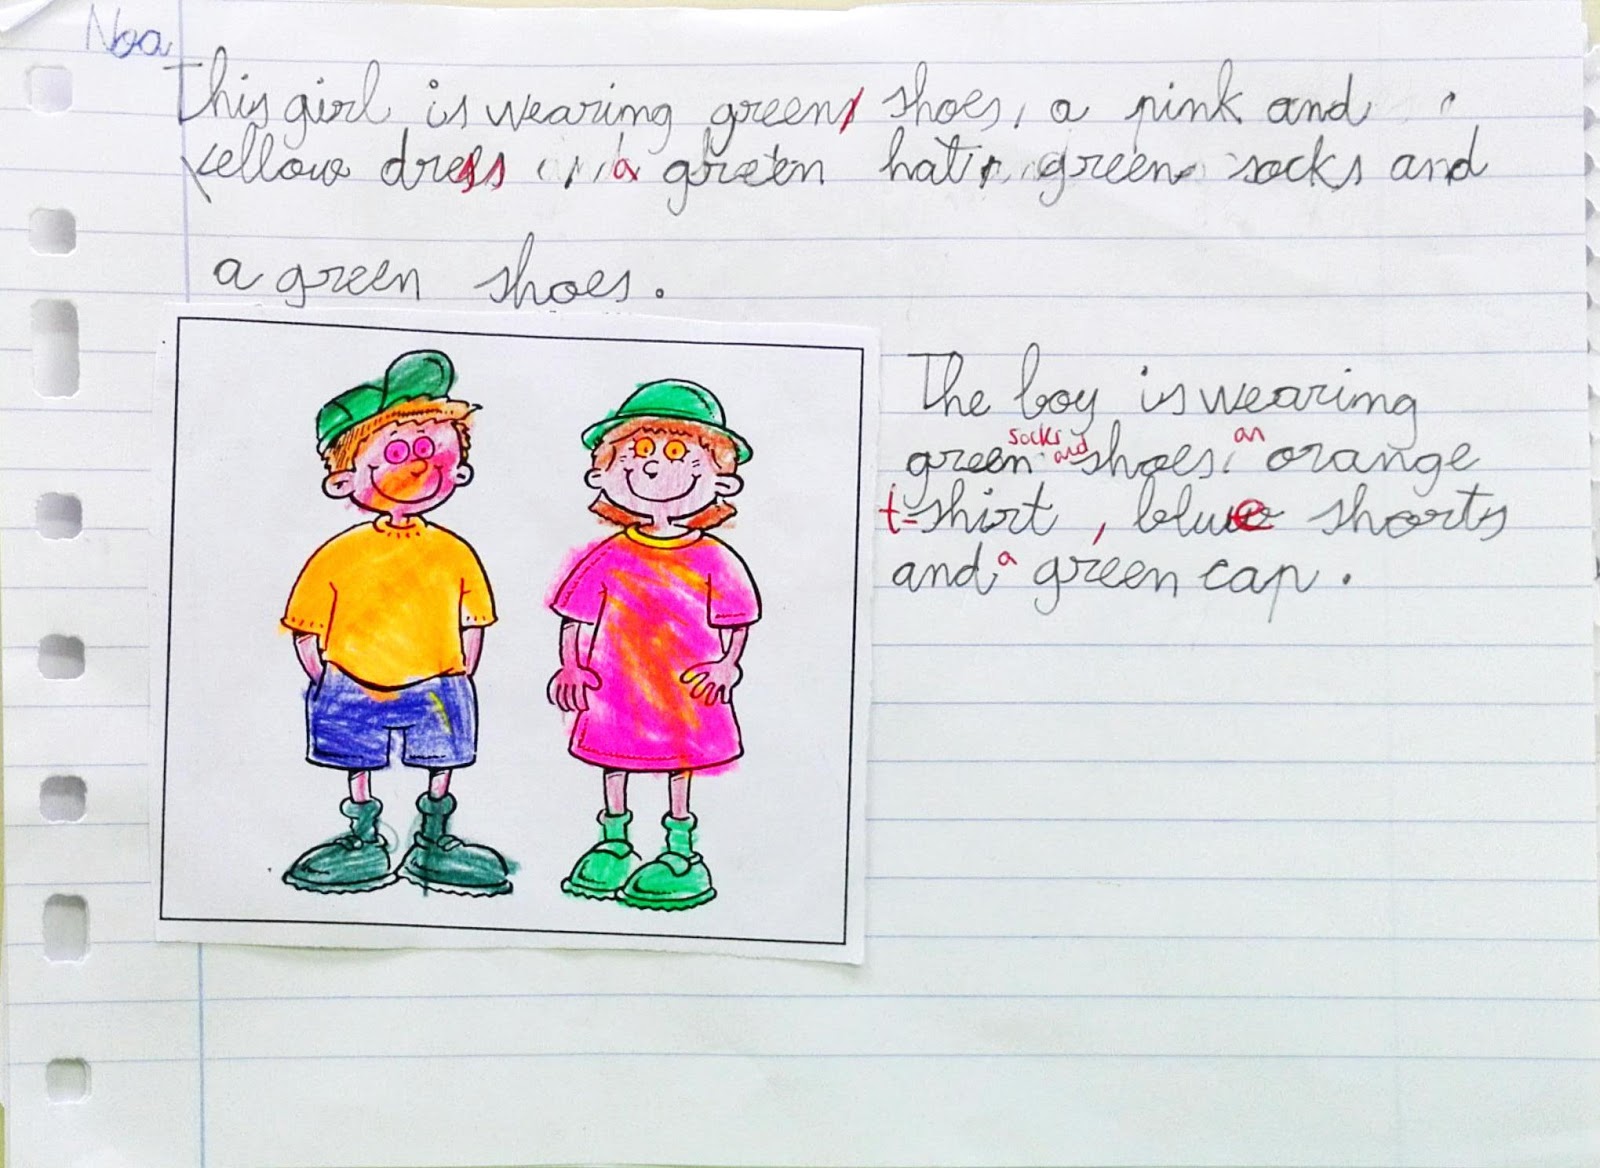 Noa
This girl is wearing greens shoes, a pink and
yellow dress a green hat, green socks and
a green shoes.
The boy is wearing
green socks and shoes, an orange
t-shirt, blue shorts
and a green cap.